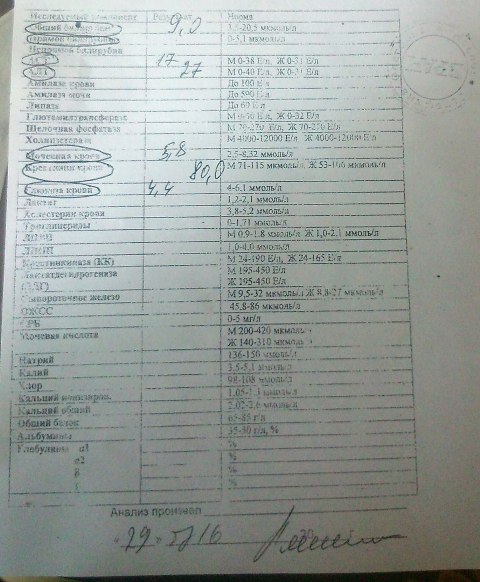 Исследуемый компонент Результат Норма
Общий билирубин 9,0 -20,5 мкмоль/л
Прямой билирубин 0-5,1 мкмоль/л
Непрямой билирубин
АСТ 17 М 0-38 Е/л Ж 0-31 Е/л
АЛТ 27 М 0-40 Е/л, Ж 0-31 Е/л
Амилаза крови До 100 Е/л
Амилаза мочи До 500 Е/л
Липаза До 60 Е/л
Глютемилтрансфераза Ж 0-32 Е/л
Щелочная фосфатаза М 70-270 Е/л, Ж 70-270 Е/л
Холинэстераза М 4000-12000 Е/л Ж 4000-12000 Е/л
Мочевина крови 5,8 2,5-8,32 ммоль/л
Креатинин крови 80,0 М 71-115 мкмоль/л Ж 53-106 мкмоль/л
Глюкоза крови 4,4 4-6,1 ммоль/л
Лактат 1,2-2,1 ммоль/л
Холестерин крови 3,8-5,2 ммоль/л
Триглицериды 0-1,71 ммоль/л
М 0,9-1,8 ммоль/л Ж 1,0-2,1 ммоль/л
1,0-4,0 ммоль/л
Креатинкиназа (КК) М 24-190 Е/л, Ж 24-165 Е/л
Лактатдегидрогеназа М 195-450 Е/л
(ЛДГ) Ж 195-450 Е/л
Сывороточное железо М 9,5-32 мкмоль/л Ж 8,8-27 мкмоль/л
ОЖСС 45,8-86 мкмоль/л
СРБ 0-5 мг/л
Мочевая кислота М 200-420 мкмоль/л
Ж 140-310 мкмоль/л
Натрий 136-150 ммоль/л
Калий 3,5-5,1 ммоль/л
Хлор 98-108 ммоль/л
Кальций ионизиров. 1,05-1,3 ммоль/л
Кальций общий ммоль/л
Общий белок 65-85 г/л
Альбумины 35-50 г/л, %
Глобулины α1 %
α2 %
β %
γ %
Анализ произвел
«29»